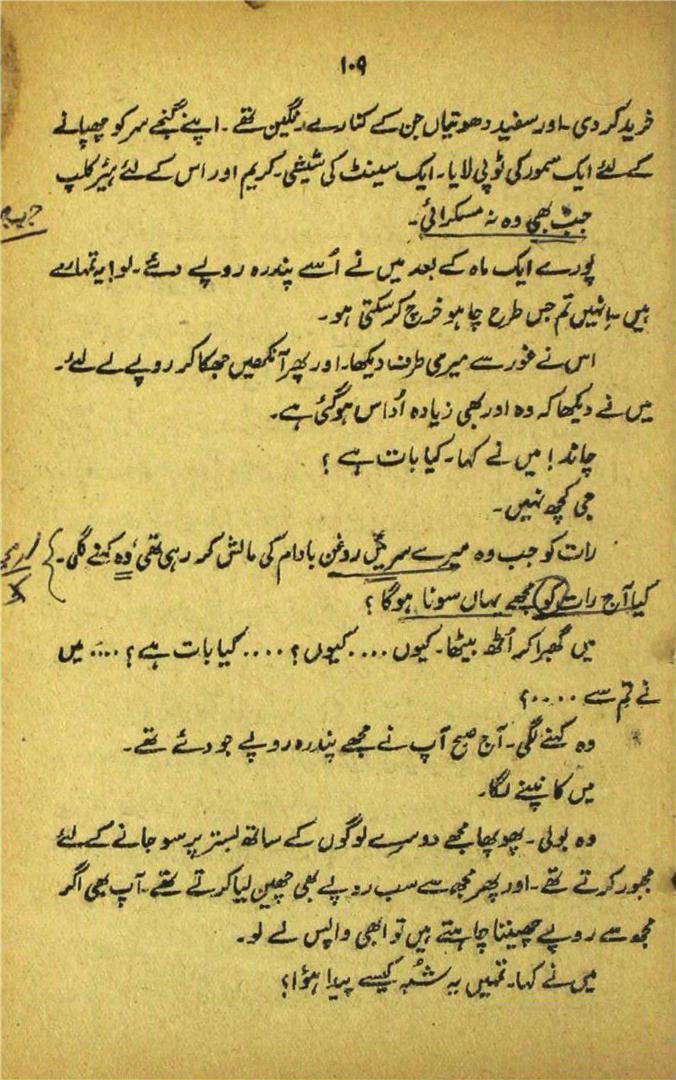 ۱۰۹
خرید کر دی۔ اور سفید دھوتیاں جن کے کنارے رنگین تھے۔ اپنے گنجے سر کو چھپانے
کے لئے ایک سمور کی ٹوپی لایا۔ ایک سینٹ کی شیشی۔ کریم اور اس کے لئے ہیئر کلپ
جب بھی وہ نہ مسکرائی۔
پورے ایک ماہ کے بعد میں نے اُسے پندرہ روپے دئے۔ لو! یہ تمہارے
ہیں۔ انہیں تم جس طرح چاہو خرچ کر سکتی ہو۔
اس نے غور سے میری طرف دیکھا۔ اور پھر آنکھیں جھکا کر روپے لے لئے۔
میں نے دیکھا کہ وہ اور بھی زیادہ اُداس ہو گئی ہے۔
چاند! میں نے کہا۔ کیا بات ہے ؟
جی کچھ نہیں۔
رات کو جب وہ میرے سر میں روغن بادام کی مالش کر رہی تھی، وہ کہنے لگی۔
کیا آج رات کو مجھے یہاں سونا ہوگا ؟
میں گھبرا کر اُٹھ بیٹھا۔ کیوں .... کیوں ؟ .... کیا بات ہے ؟ .... میں
نے تم سے ....؟
وہ کہنے لگی۔ آج صبح آپ نے مجھے پندرہ روپے جو دئے تھے۔
میں کانپنے لگا۔
وہ بولی۔ پھوپھا مجھے دوسرے لوگوں کے ساتھ بستر پر سو جانے کے لئے
مجبور کرتے تھے۔ اور پھر مجھ سے سب روپے بھی چھین لیا کرتے تھے۔ آپ بھی اگر
مجھ سے روپے چھیننا چاہتے ہیں تو ابھی واپس لے لو۔
میں نے کہا۔ تمہیں یہ شُبہ کیسے پیدا ہؤا؟